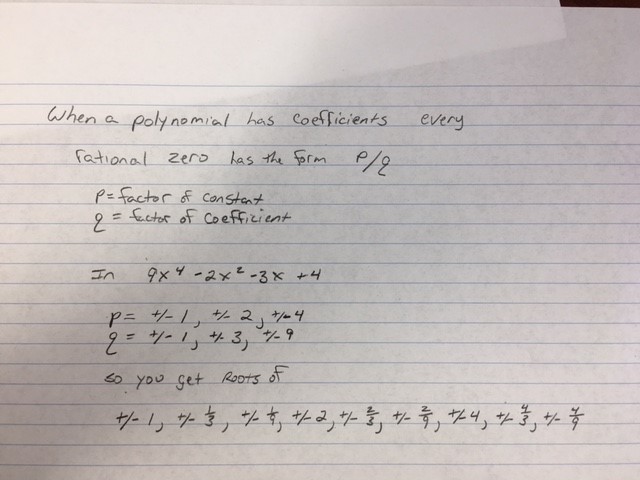 When a polynomial has coefficients every
rational zero has the form P/q
P = factor of constant
q = factor of coefficient
In 9x⁴ - 2x² - 3x + 4
p = +/- 1, +/- 2, +/- 4
q = +/- 1, +/- 3, +/- 9
so you get Roots of
+/- 1, +/- 1/3, +/- 1/9, +/- 2, +/- 2/3, +/- 2/9, +/- 4, +/- 4/3, +/- 4/9